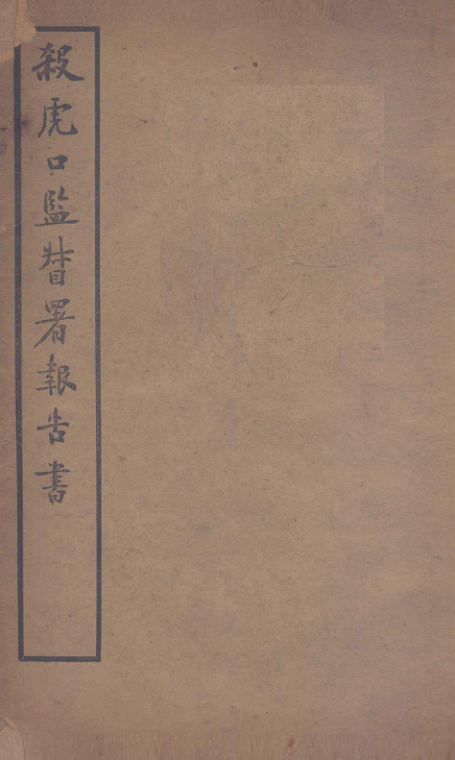 殺虎口監督署報告書